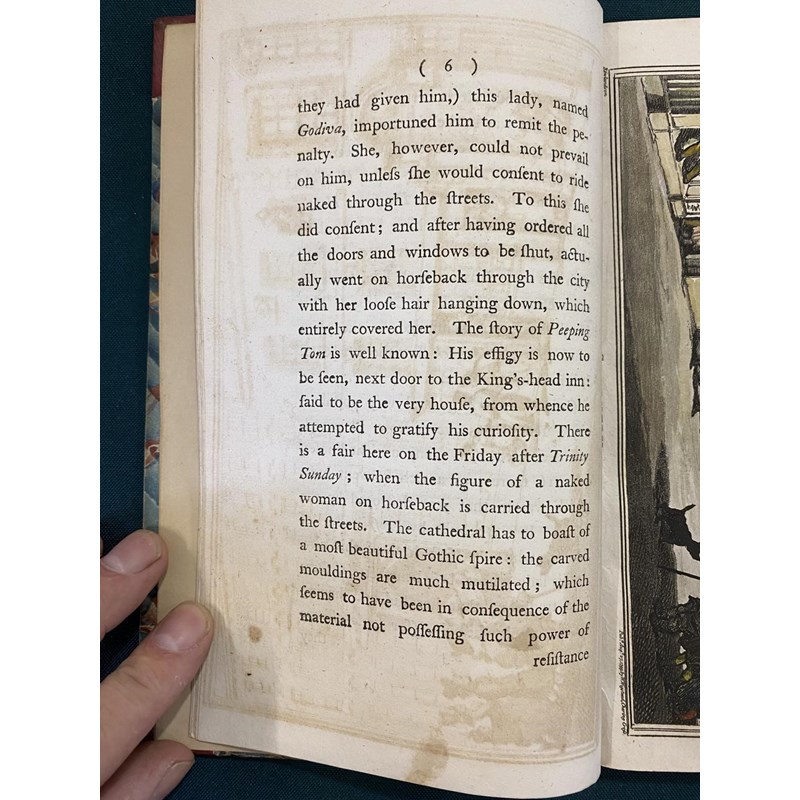 ( 6 )
they had given him,) this lady, named
Godiva, importuned him to remit the pe-
nalty. She, however, could not prevail
on him, unleſs ſhe would conſent to ride
naked through the ſtreets. To this ſhe
did conſent; and after having ordered all
the doors and windows to be ſhut, actu-
ally went on horſeback through the city
with her looſe hair hanging down, which
entirely covered her. The ſtory of Peeping
Tom is well known: His effigy is now to
be ſeen, next door to the King's-head inn:
ſaid to be the very houſe, from whence he
attempted to gratify his curioſity. There
is a fair here on the Friday after Trinity
Sunday; when the figure of a naked
woman on horſeback is carried through
the ſtreets. The cathedral has to boaſt of
a moſt beautiful Gothic ſpire: the carved
mouldings are much mutilated; which
ſeems to have been in conſequence of the
material not poſſeſſing ſuch power of
reſiſtance